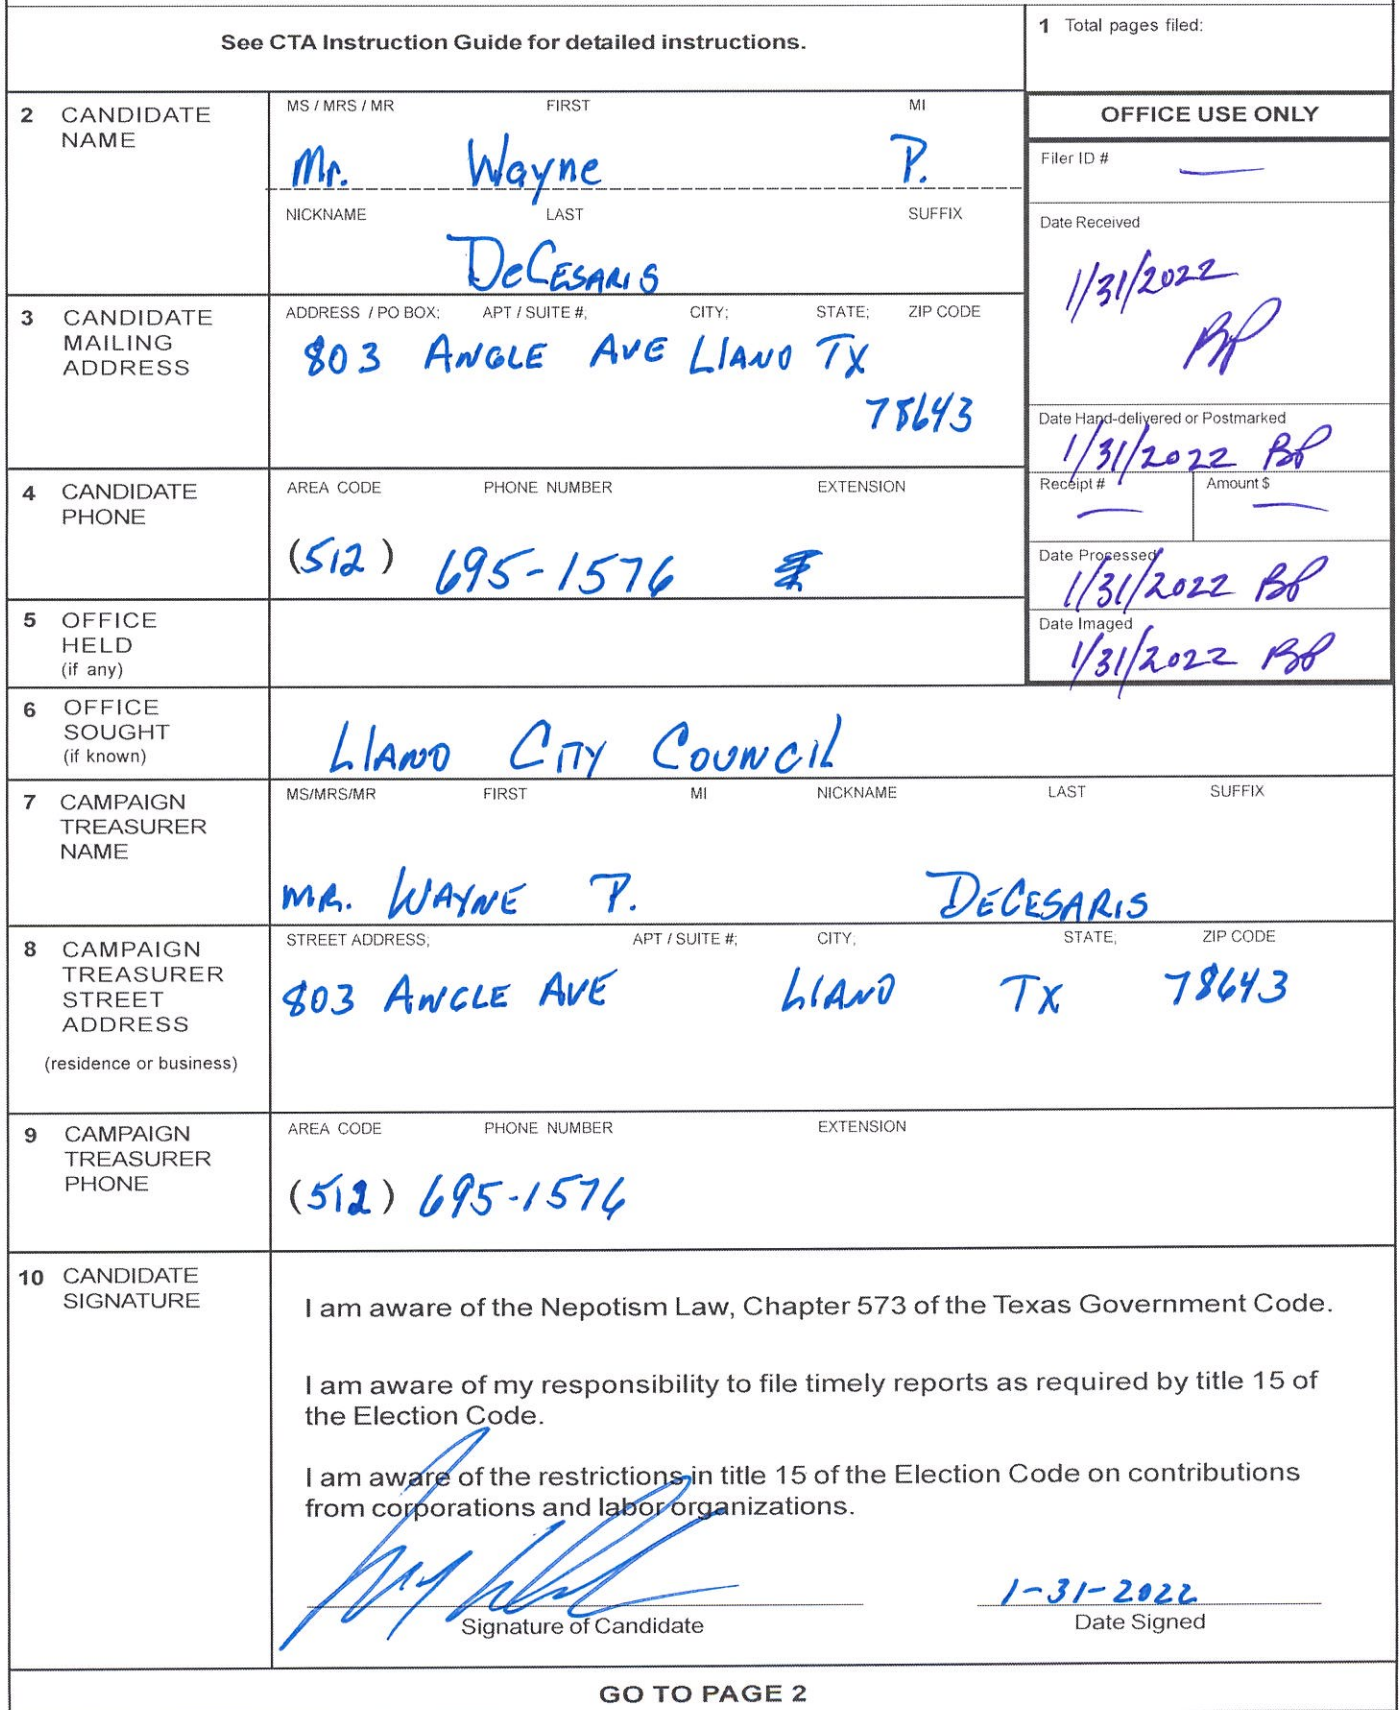 See CTA Instruction Guide for detailed instructions.
1 Total pages filed:
2 CANDIDATE NAME
MS / MRS / MR FIRST MI
Mr. Wayne P.
NICKNAME LAST SUFFIX
DeCESARIS
OFFICE USE ONLY
Filer ID # —
Date Received
1/31/2022
BP
3 CANDIDATE MAILING ADDRESS
ADDRESS / PO BOX; APT / SUITE #; CITY; STATE; ZIP CODE
803 ANGLE AVE LlANO TX
78643
Date Hand-delivered or Postmarked
1/31/2022 BP
Receipt # Amount $
— —
4 CANDIDATE PHONE
AREA CODE PHONE NUMBER EXTENSION
(512) 695-1576
Date Processed
1/31/2022 BP
Date Imaged
1/31/2022 BP
5 OFFICE HELD
(if any)
6 OFFICE SOUGHT
(if known)
LlANO CITY COUNCIL
7 CAMPAIGN TREASURER NAME
MS/MRS/MR FIRST MI NICKNAME LAST SUFFIX
MR. WAYNE P. DECESARIS
8 CAMPAIGN TREASURER STREET ADDRESS
(residence or business)
STREET ADDRESS; APT / SUITE #; CITY, STATE, ZIP CODE
803 ANGLE AVE LlANO TX 78643
9 CAMPAIGN TREASURER PHONE
AREA CODE PHONE NUMBER EXTENSION
(512) 695-1576
10 CANDIDATE SIGNATURE
I am aware of the Nepotism Law, Chapter 573 of the Texas Government Code.
I am aware of my responsibility to file timely reports as required by title 15 of
the Election Code.
I am aware of the restrictions in title 15 of the Election Code on contributions
from corporations and labor organizations.
1-31-2022
Signature of Candidate Date Signed
GO TO PAGE 2